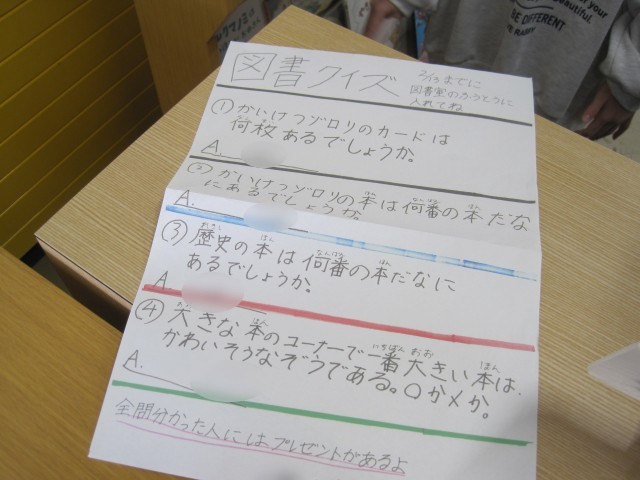 図書クイズ
3/13までに
図書室のふうとうに
入れてね
① かいけつゾロリのカードは
何枚あるでしょうか。
A.
② かいけつゾロリの本は何番の本だな
にあるでしょうか
A.
③ 歴史の本は何番の本だなに
あるでしょうか。
A.
④ 大きな本のコーナーで一番大きい本は、
かわいそうなぞうである。○か×か。
A.
全問分かった人にはプレゼントがあるよ
BE DIFFERENT